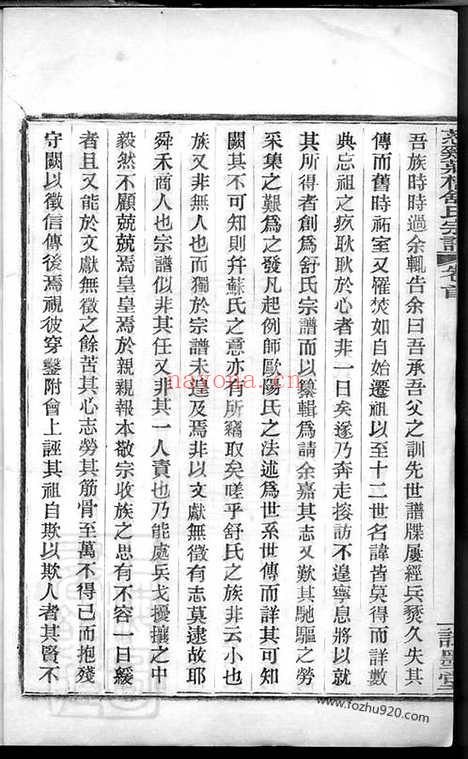 慈谿莊橋舒氏宗譜 卷首
吾族時時過余輒告余曰吾承吾父之訓先世譜牒屢經兵燹久失其
傳而舊時祏室又罹焚如自始遷祖以至十二世名諱皆莫得而詳數
典忘祖之疚耿耿於心者非一日矣遂乃奔走採訪不遑寧息將以就
其所得者創爲舒氏宗譜而以纂輯爲請余嘉其志又歎其馳驅之勞
采集之艱爲之發凡起例師歐陽氏之法述爲世系世傳而詳其可知
闕其不可知則幷蘇氏之意亦有所竊取矣嗟乎舒氏之族非云小也
族又非無人也而獨於宗譜未遑及焉非以文獻無徵有志莫逮故耶
舜禾商人也宗譜似非其任又非其一人責也乃能處兵戈擾攘之中
毅然不顧兢兢焉皇皇焉於親親報本敬宗收族之思有不容一日緩
者且又能於文獻無徵之餘苦其心志勞其筋骨至萬不得已而抱殘
守闕以徵信傳後焉視彼穿鑿附會上誣其祖自欺以欺人者其賢不
nayona.cn
www.fozhu920.com